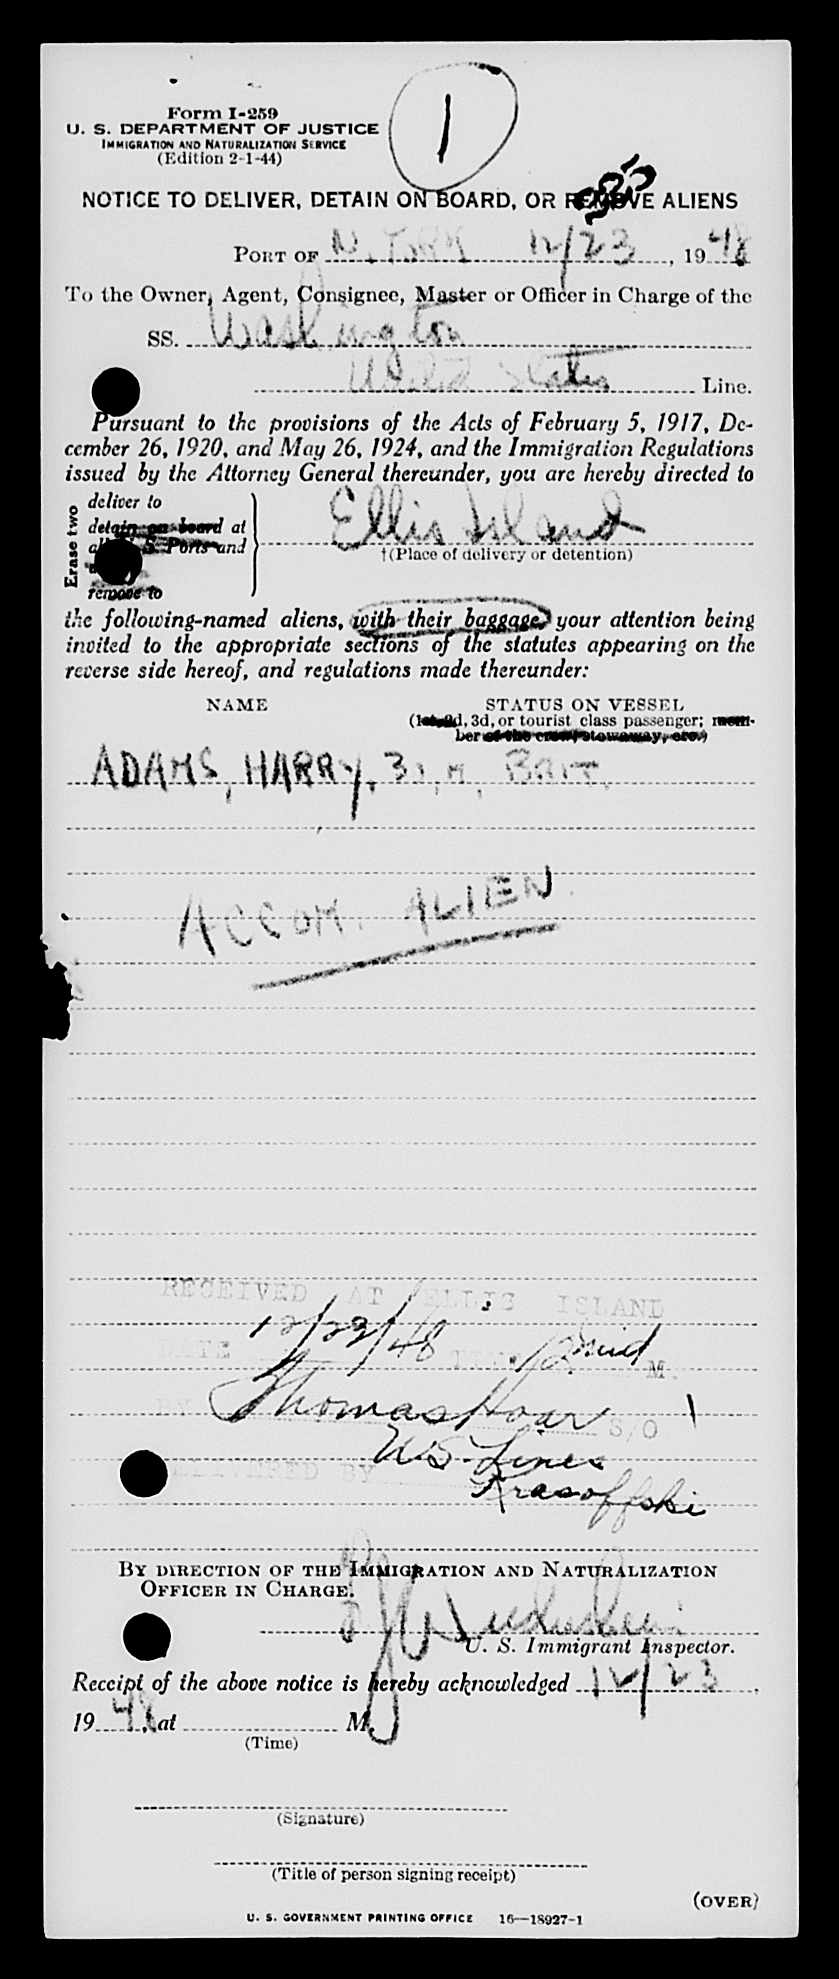 1
Form I-259
U. S. DEPARTMENT OF JUSTICE
IMMIGRATION AND NATURALIZATION SERVICE
(Edition 2-1-44)
NOTICE TO DELIVER, DETAIN ON BOARD, OR REMOVE ALIENS
PORT OF N. York 12/23, 1948
To the Owner, Agent, Consignee, Master or Officer in Charge of the
SS. Washington
United States Line.
Pursuant to the provisions of the Acts of February 5, 1917, De-
cember 26, 1920, and May 26, 1924, and the Immigration Regulations
issued by the Attorney General thereunder, you are hereby directed to
Erase two
deliver to
detain on board at
S. Ports and
remove to
Ellis Island
†(Place of delivery or detention)
the following-named aliens, with their baggage, your attention being
invited to the appropriate sections of the statutes appearing on the
reverse side hereof, and regulations made thereunder:
NAME STATUS ON VESSEL
(1st, 2d, 3d, or tourist class passenger; mem-
ber of the crew, stowaway, etc.)
ADAMS, HARRY, M, BRIT.
ACCOM. ALIEN
RECEIVED AT ELLIS ISLAND
DATE 12/23/48 TIME 12 Mid M.
BY Thomas Hoar S/O 1
US Lines
DELIVERED BY Krasoffski
BY DIRECTION OF THE IMMIGRATION AND NATURALIZATION
OFFICER IN CHARGE.
U. S. Immigrant Inspector.
Receipt of the above notice is hereby acknowledged 12/23,
1948, at M.
(Time)
(Signature)
(Title of person signing receipt)
(OVER)
U. S. GOVERNMENT PRINTING OFFICE 16—18927-1